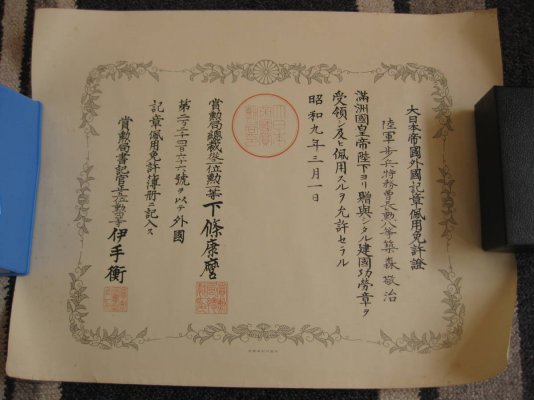 大日本帝國外國記章佩用免許證
陸軍歩兵特務曹長勲八等築森敬治
滿洲國皇帝陛下ヨリ贈與シタル建國功勞章ヲ
受領シ及ヒ佩用スルヲ允許セラル
昭和九年三月一日
賞勲局總裁從位勲等下條康麿
第二万二千四百六十六號ヲ以テ外國
記章佩用免許簿册ニ記入ス
賞勲局書記官位勲等伊手衡